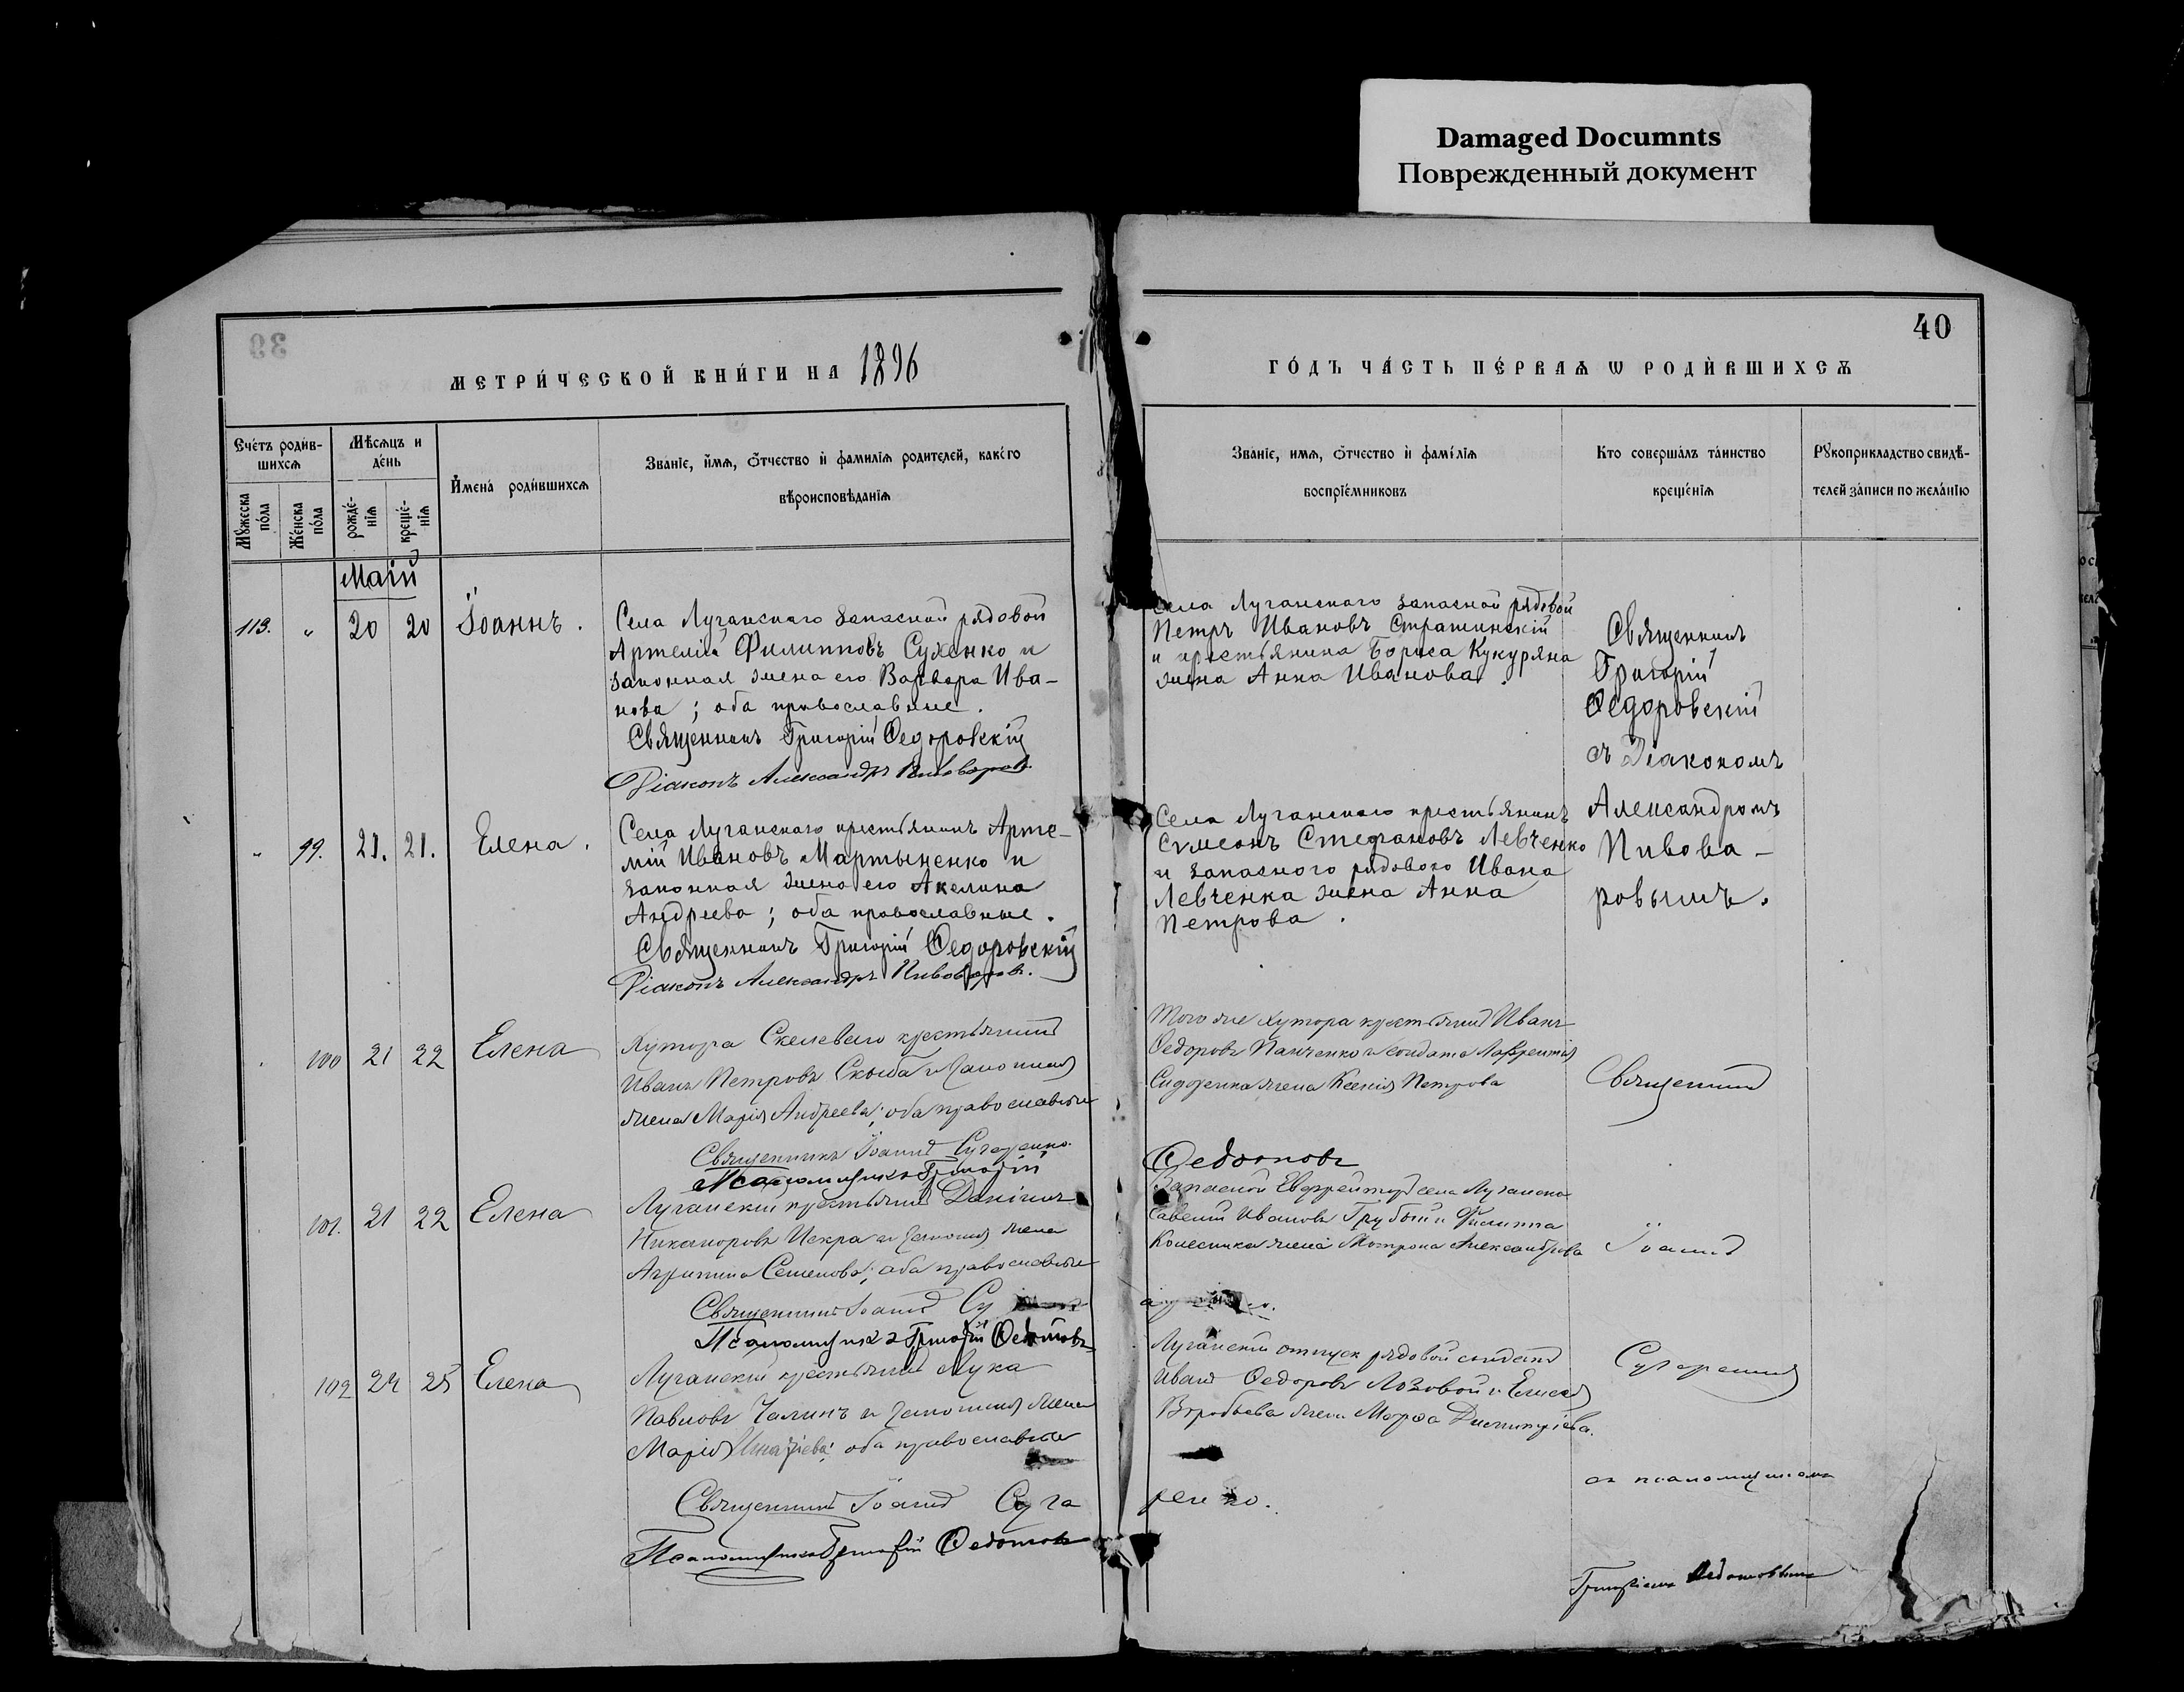 Damaged Documnts
Поврежденный документ
40
МЕТРИ́ЧЕСКОЙ КНИ́ГИ НА 1896
ГО́ДЪ ЧА́СТЬ ПЕ́РВАѦ Ѡ РОДИ́ВШИХСѦ
Сче́тъ роди́в-
шихсѧ
Мѣ́сѧцъ и
де́нь
И҆мена̀ роди́вшихсѧ
Зва́нїе, и҆́мѧ, ѻ҆́тчество и҆ фами́лїѧ роди́телей, како́гѡ
вѣроисповѣ́данїѧ
Мꙋ́жеска
по́ла
Же́нска
по́ла
рожде́-
нїѧ
креще́-
нїѧ
Зва́нїе, имѧ, ѻ҆́тчество и҆ фамі́лїѧ
воспрїе́мниковъ
Кто соверша́лъ та́инство
креще́нїѧ
Рꙋкоприкладство свидѣ́-
телей за́писи по жела́нїю
Маій
113. " 20 20 Іоаннъ.
Села Луганскаго запасной рядовой
Артемій Филипповъ Сухенко и
законная жена его Варвара Ива-
нова; оба православные.
Священникъ Григорій Ѳедоровскій
Діаконъ Александръ Пивоваровъ.
Села Луганскаго запасной рядовой
Петръ Ивановъ Страшинскій
и крестьянина Бориса Кукуряка
жена Анна Иванова.
Священникъ
Григорій
Ѳедоровскій
съ Діакономъ
Александромъ
Пивова-
ровымъ.
" 99. 21. 21. Елена.
Села Луганскаго крестьянинъ Арте-
мій Ивановъ Мартыненко и
законная жена его Акелина
Андреева; оба православные.
Священникъ Григорій Ѳедоровскій
Діаконъ Александръ Пивоваровъ.
Села Луганскаго крестьянинъ
Сѵмеонъ Стефановъ Левченко
и запаснаго рядоваго Ивана
Левченка жена Анна
Петрова.
100 21 22 Елена
Хутора Скелеваго крестьянинъ
Иванъ Петровъ Скыба и законная
жена Марія Андреева; оба православные
Священникъ Іоаннъ Сугаренко.
Псаломщикъ Григорій
Того же хутора крестьянинъ Иванъ
Ѳедоровъ Панченко и солдата Лаврентія
Сидоренка жена Ксенія Петрова
Ѳедотовъ
Священникъ
101. 21 22 Елена
Луганскій крестьянинъ Даніилъ
Никаноровъ Искра и законная жена
Агрипина Семенова; оба православные
Священникъ Іоаннъ Су
Псаломщикъ Григорій Ѳедотовъ
Запасной Ефрейторъ села Луганска
Савелій Ивановъ Грубый и Филиппа
Колесника жена Матрона Александрова
Іоаннъ
102 24 25 Елена
Луганскій крестьянинъ Лука
Павловъ Чалинъ и законная жена
Марія Игнатіева; оба православные
Священникъ Іоаннъ Суга
Псаломщикъ Григорій Ѳедотовъ
Луганскій отпуск рядовой солдатъ
Иванъ Ѳедоровъ Лозовой и Елисея
Воробьева жена Марѳа Димитріева.
ренко.
Сугаренко
съ псаломщикомъ
Григоріемъ Ѳедотовымъ